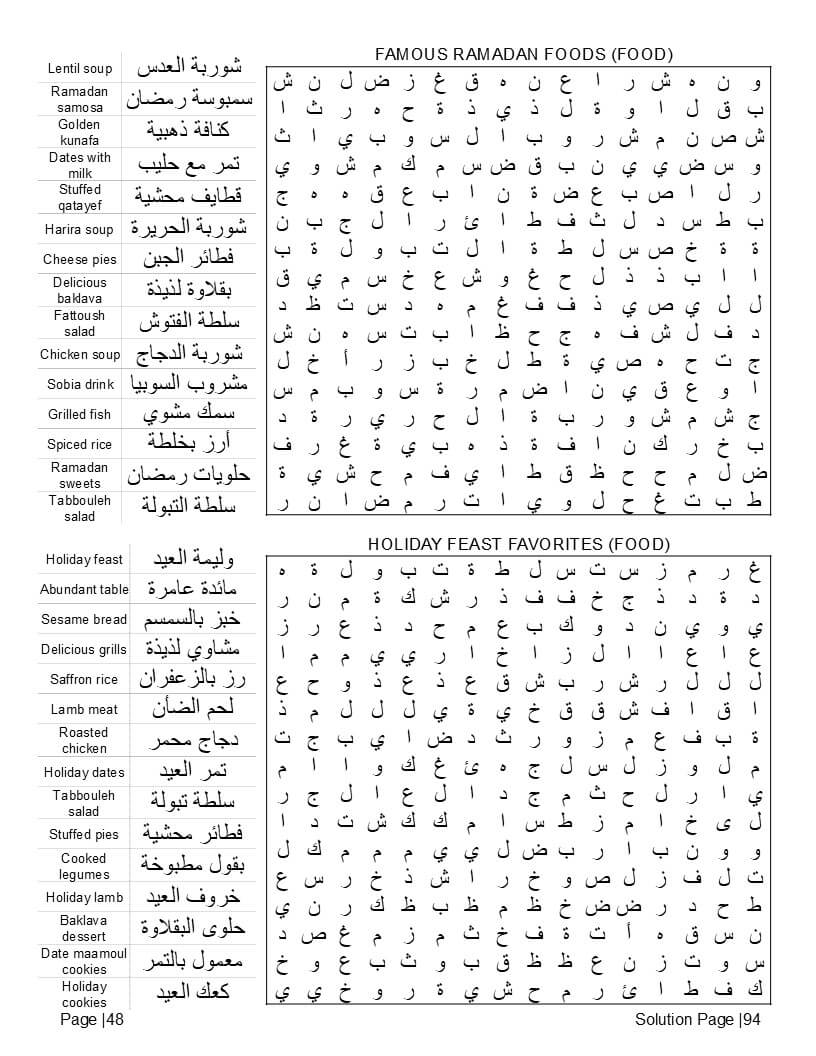 FAMOUS RAMADAN FOODS (FOOD)
Lentil soup شوربة العدس
Ramadan samosa سمبوسة رمضان
Golden kunafa كنافة ذهبية
Dates with milk تمر مع حليب
Stuffed qatayef قطايف محشية
Harira soup شوربة الحريرة
Cheese pies فطائر الجبن
Delicious baklava بقلاوة لذيذة
Fattoush salad سلطة الفتوش
Chicken soup شوربة الدجاج
Sobia drink مشروب السوبيا
Grilled fish سمك مشوي
Spiced rice أرز بخلطة
Ramadan sweets حلويات رمضان
Tabbouleh salad سلطة التبولة
و ن ه ش ر ا ع ن ه ق غ ز ض ل ن ش
ب ق ل ا و ة ل ذ ي ذ ة ح ه ر ث ا
ش ص ن م ش ر و ب ا ل س و ب ي ا ث
و س ض ي ي ن ب ق ض س م ك م ش و ي
ر ل ا ص ب ع ض ة ن ا ب ع ق ه ه ج
ب ط س د ل ث ف ط ا ئ ر ا ل ج ب ن
ة ة خ ص س ل ط ة ا ل ت ب و ل ة ب
ا ا ب ذ ذ ل ح غ و ش ع خ س م ي ق
ل ل ي ص ي ذ ف ف غ م ه د س ت ظ د
د ف ل ش ف ه ج ح ظ ا ب ت س ه ن ش
ج ت ح ه ص ي ة ط ل خ ب ز ر أ خ ل
ا و ع ق ي ن ا ض م ر ة س و ب م س
ج ش م ش و ر ب ة ا ل ح ر ي ر ة د
ب خ ر ك ن ا ف ة ذ ه ب ي ة غ ر ف
ض ل م ح ح ظ ق ط ا ي ف م ح ش ي ة
ط ب ت غ ح ل و ي ا ت ر م ض ا ن ر
HOLIDAY FEAST FAVORITES (FOOD)
Holiday feast وليمة العيد
Abundant table مائدة عامرة
Sesame bread خبز بالسمسم
Delicious grills مشاوي لذيذة
Saffron rice رز بالزعفران
Lamb meat لحم الضأن
Roasted chicken دجاج محمر
Holiday dates تمر العيد
Tabbouleh salad سلطة تبولة
Stuffed pies فطائر محشية
Cooked legumes بقول مطبوخة
Holiday lamb خروف العيد
Baklava dessert حلوى البقلاوة
Date maamoul cookies معمول بالتمر
Holiday cookies كعك العيد
غ ر م ز س ت س ل ط ة ت ب و ل ة ه
د ة د ذ ج خ ف ف ذ ر ش ك ة م ن ر
ي و ي ن د و ك ب ع م ح د ذ ع ر ز
ع ا ع ا ا ل ز ا خ ا ر ي ي م م ا
ل ل ل ل ر ش ر ب ش ق ع ذ ع ذ و ح ع
ا ق ا ف ش ق ق خ ي ة ي ل ل ل م ذ
ة ب ف ع م ز و ر ث د ض ا ي ب ج ت
م ل و ز ل س ل ج ه ئ غ ك و ا ا م
ي ا ر ل ح ث م ج د ا ل ع ا ل ج ر
ل ى خ ا م ز ط س ا م ك ك ش ت د ا
و و ن ب ا ر ب ض ل ي ي م م م ك ل
ت ل ف ز ل ص و خ ر ا ش ذ خ ر س ع
ط ح د ر ض ض خ ظ م ظ ب ظ ك ر ن ي
ن س ق ه أ ت ة ف خ ث م ز م غ ص د
س و ت ز ن ع ظ ظ ق ب و ث ب ع و خ
ك ف ط ا ئ ر م ح ش ي ة ر و خ ي ي
Page |48
Solution Page |94